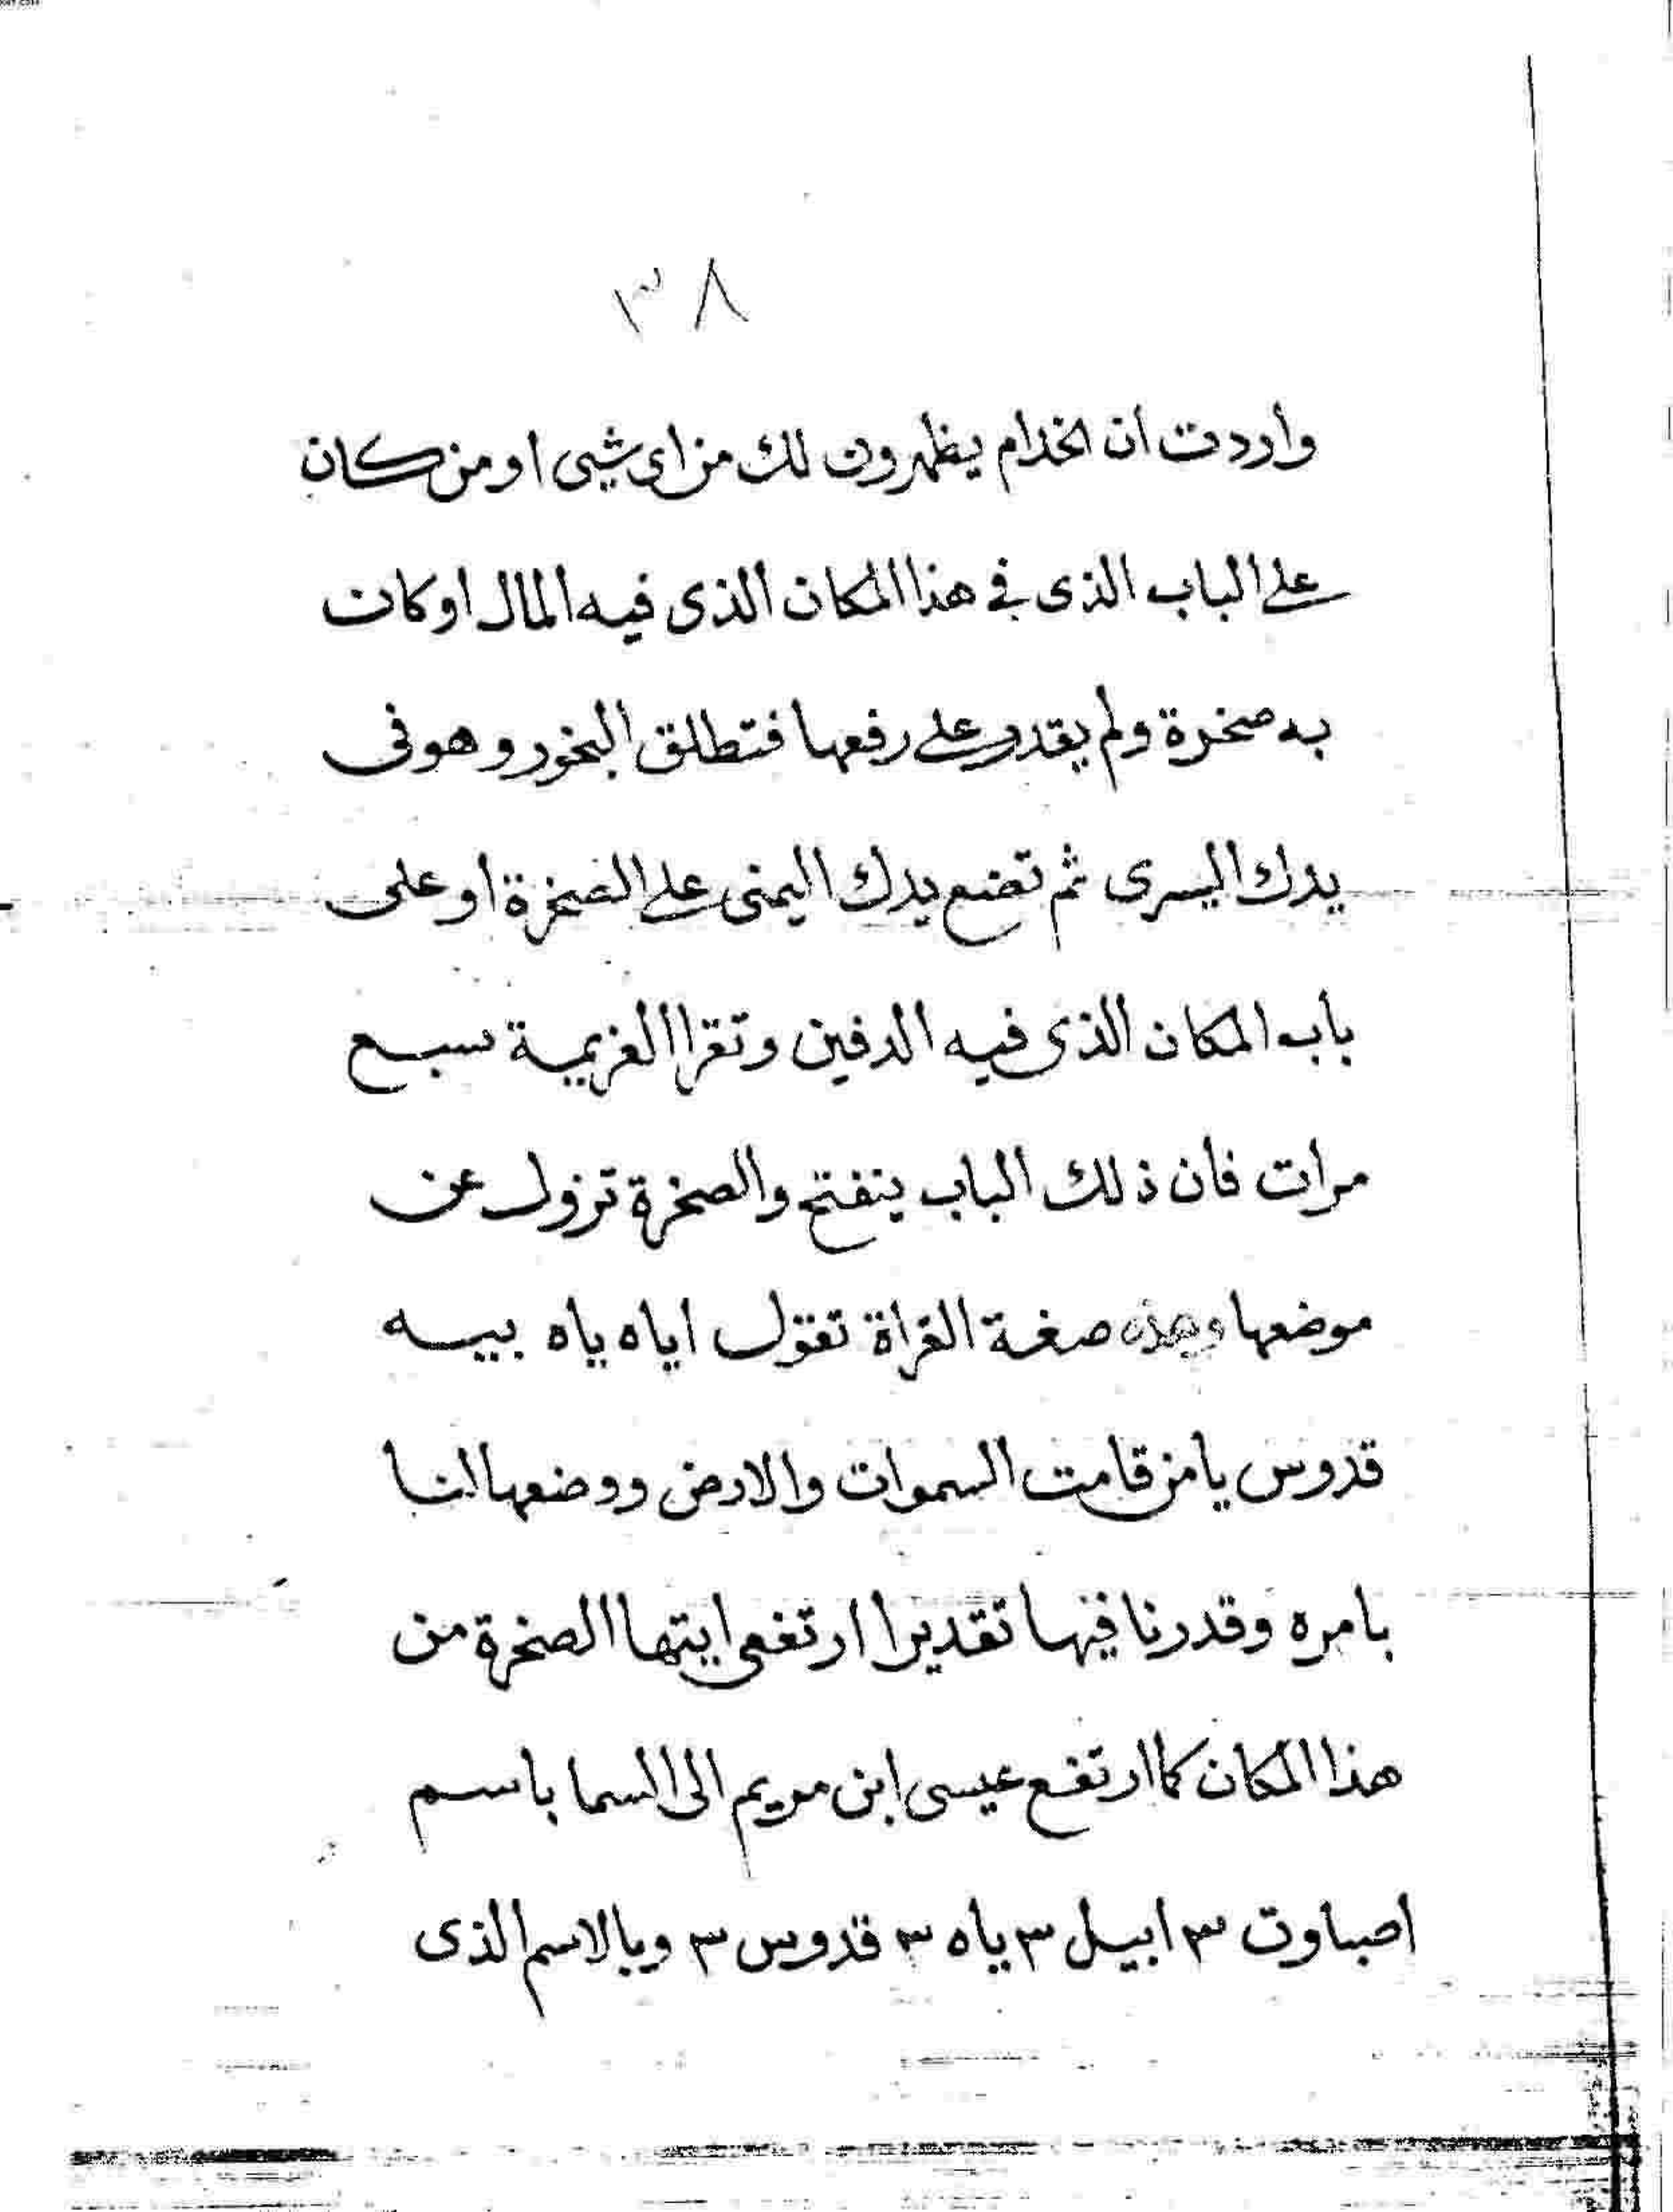 ٣٨
وأردت ان الخدام يظهرون لك من اى شيى او من كان
على الباب الذى فى هذا المكان الذى فيه المال او كان
به صخرة ولم يقدر على رفعها فتطلق البخور وهو فى
يدك اليسرى ثم تضع يدك اليمنى على الصخرة او على
باب المكان الذى فيه الدفين وتقرا العزيمة سبع
مرات فان ذلك الباب ينفتح والصخرة تزول عن
موضعها وهذه صفة القراة تقول اياه ياه بيه
قدوس يا من قامت السموات والارض ووضعها لنا
بامره وقدرنا فيها تقديرا ارتفعى ايتها الصخرة من
هذا المكان كما ارتفع عيسى ابن مريم الى السما باسم
اصباوت ٣ ابيل ٣ ياه ٣ قدوس ٣ وبالاسم الذى